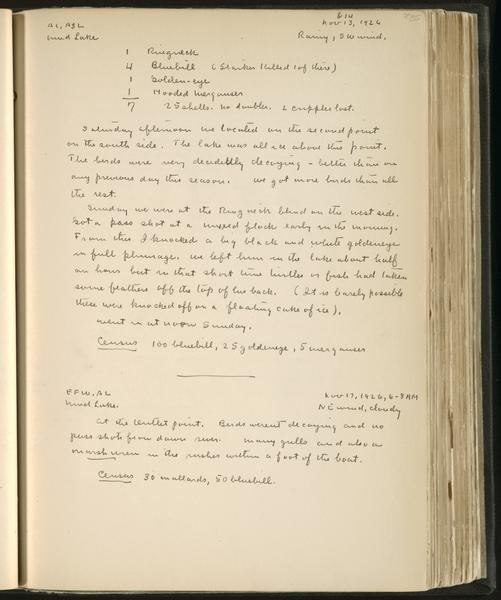 AL, ASL
Nov 13, 1926
Mud Lake
Rainy, SW wind.
1 Ringneck
4 Bluebill (Starker killed 1 of these)
1 Golden-eye
1 Hooded Merganser
7 25 shells. no doubles. 2 cripples lost.
Saturday afternoon we located on the second point
on the south side. The lake was all ice above this point.
The birds were very decidedly decoying - better than on
any previous day this season. We got more birds than all
the rest.
Sunday we were at the Ringneck blind on the west side.
Got a pass shot at a mixed flock early in the morning.
From this I knocked a big black and white goldeneye
in full plumage. We left him in the lake about half
an hour but in that short time turtles or fish had taken
some feathers off the top of his back. (It is barely possible
these were knocked off on a floating cake of ice).
Went in at noon Sunday.
Census 100 bluebill, 25 goldeneye, 5 merganser
EFW, AL
Nov 17, 1926, 6-8 AM
Mud Lake.
NE wind, cloudy
At the point. Birds weren't decoying and no
pass shots from down river. Many gulls and also a
marsh wren in the rushes within a foot of the boat.
Census 30 mallards, 50 bluebill.